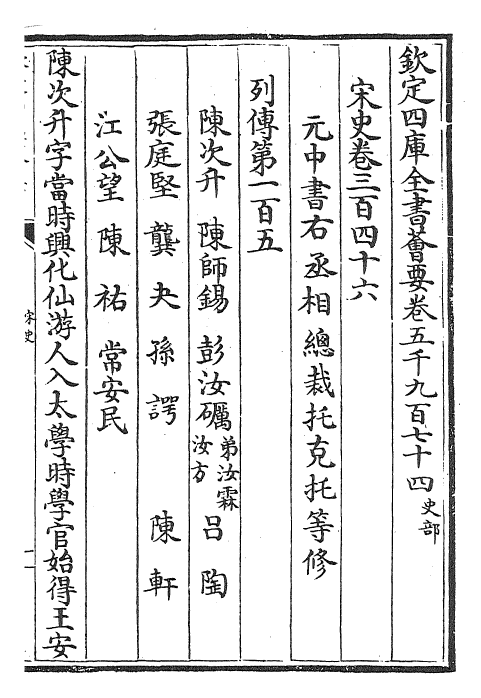 欽定四庫全書薈要卷五千九百七十四 史部
宋史卷三百四十六
元中書右丞相總裁托克托等修
列傳第一百五
陳次升 陳師錫 彭汝礪 弟汝霖 汝方 呂陶
張庭堅 龔夬 孫諤 陳軒
江公望 陳祐 常安民
陳次升字當時興化仙游人入太學時學官始得王安
宋史
一